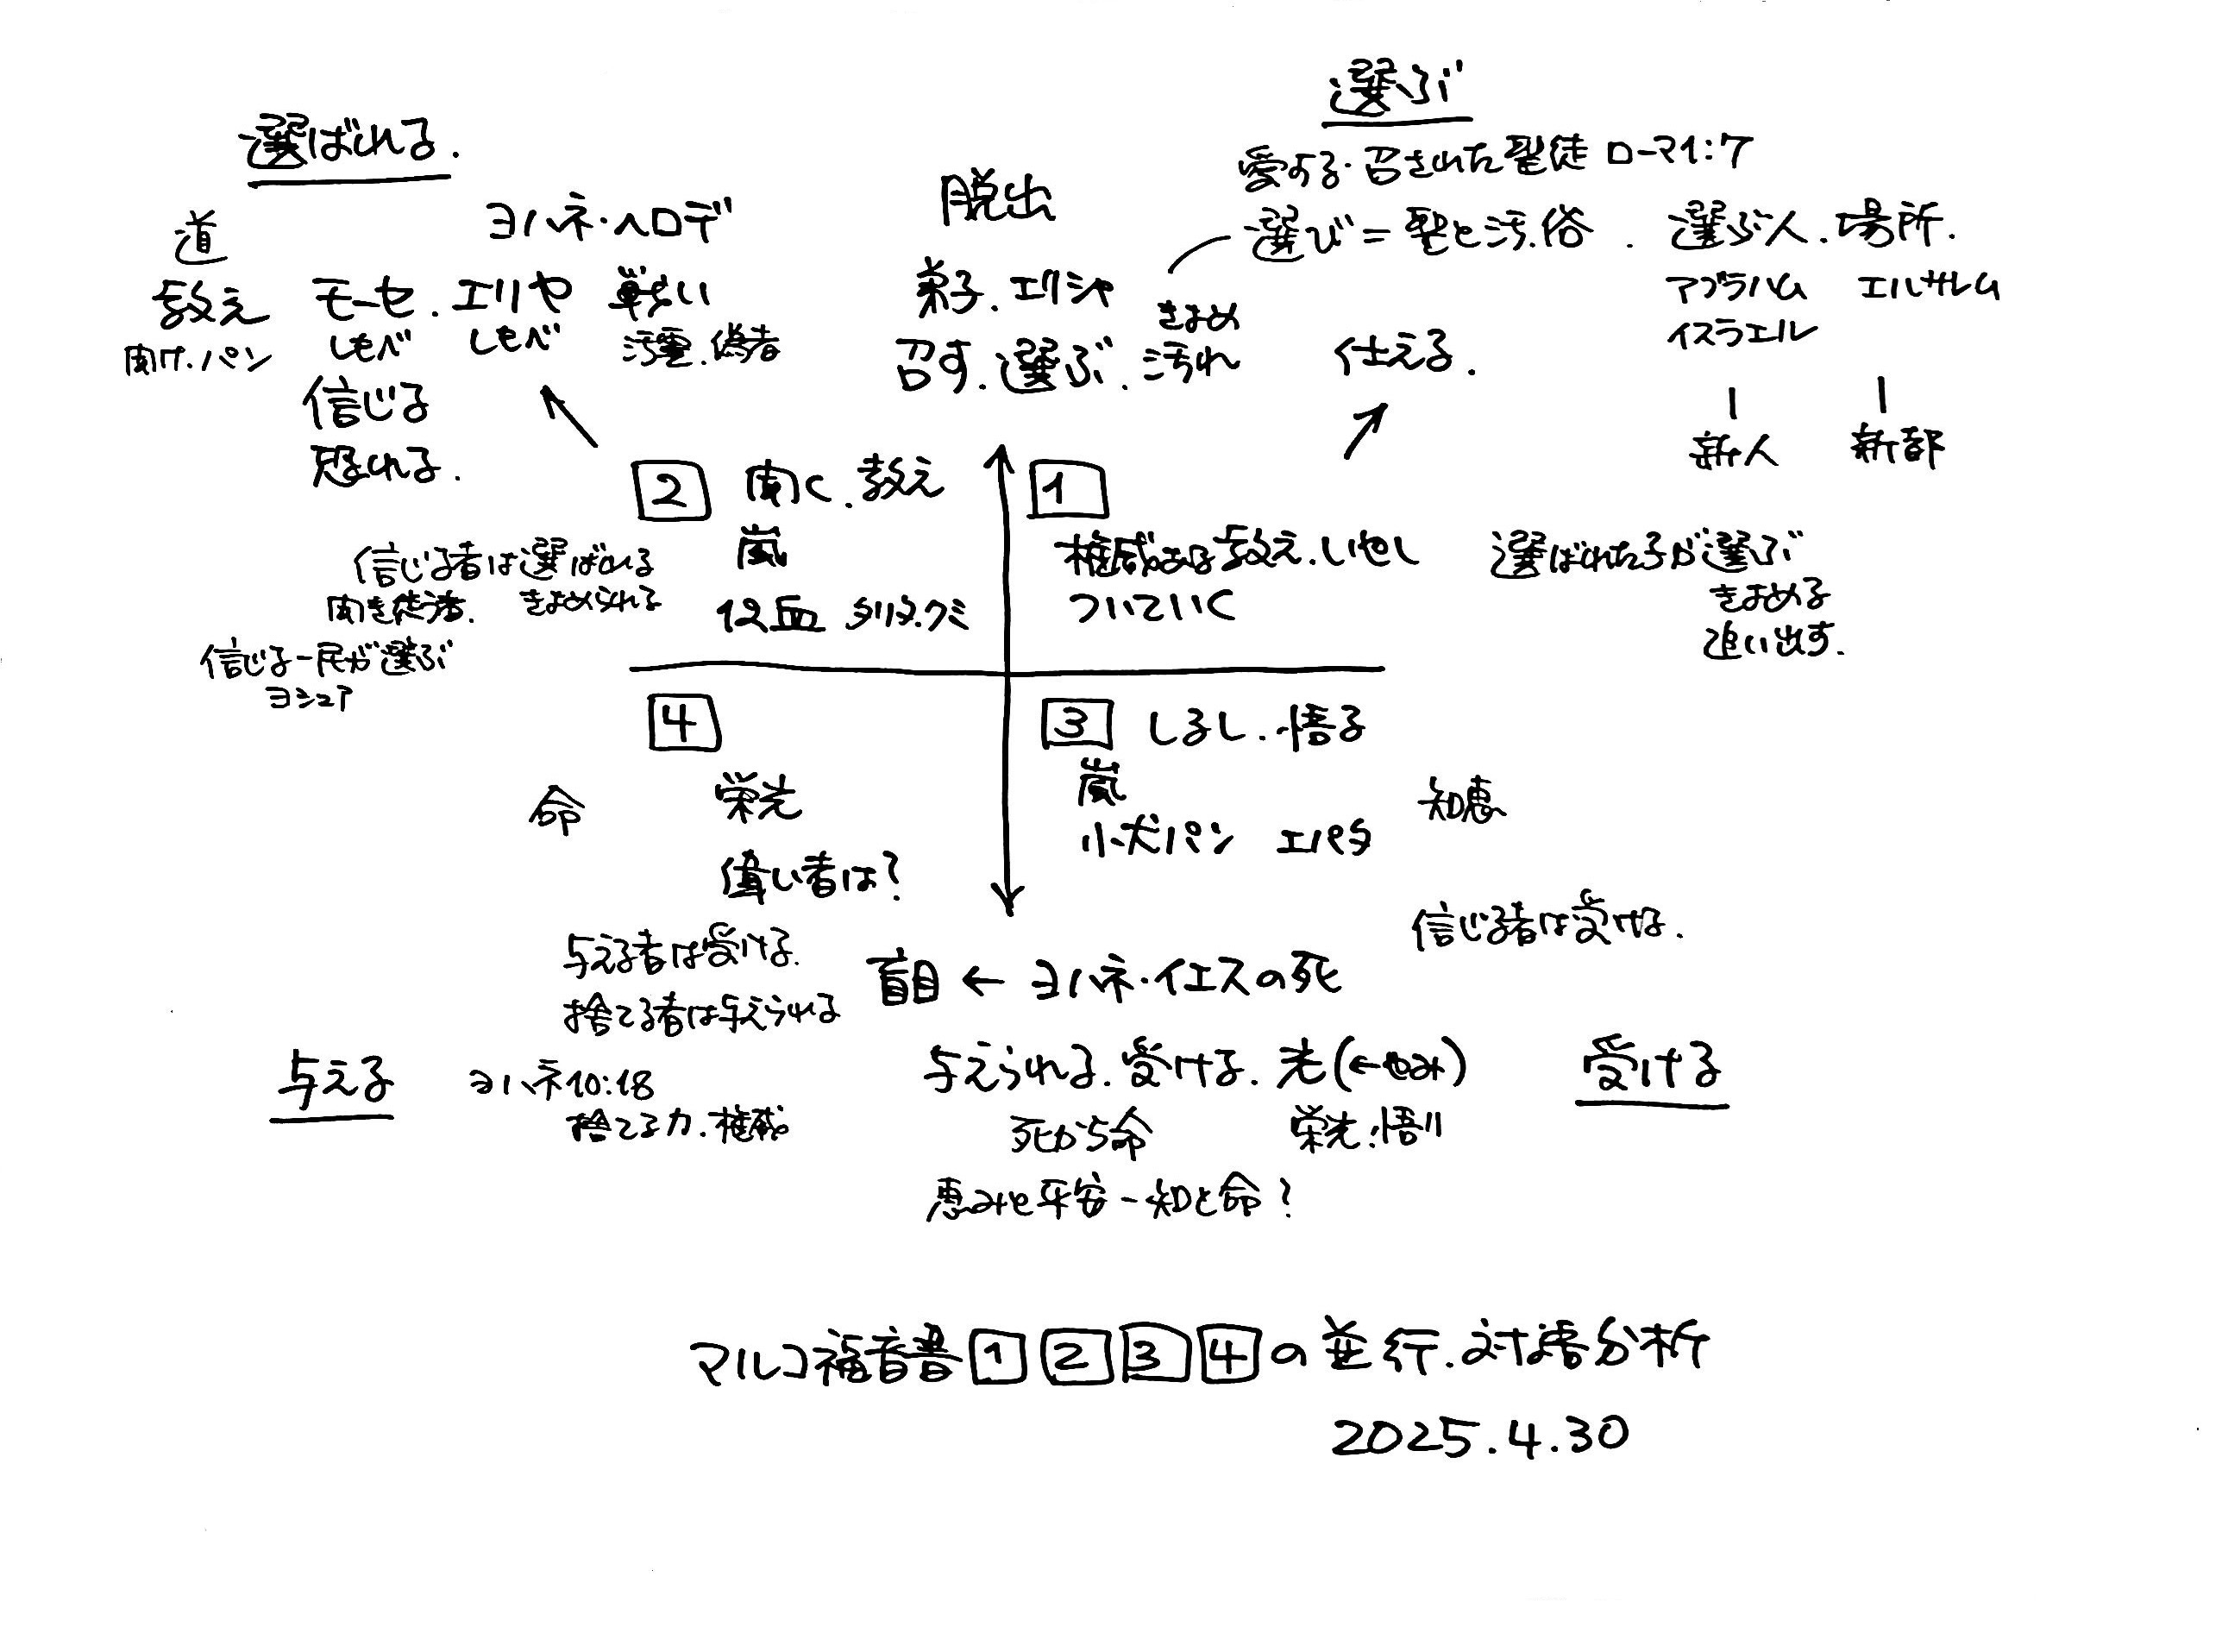 選ばれる.
道
教え
聞け.パン
ヨハネ・ヘロデ
モーセ.エリヤ 戦い
しもべ しもべ 汚霊.偽者
信じる
恐れる.
脱出
弟子.エリシャ
召す.選ぶ.汚れ
きよめ
選ぶ
愛する・召された聖徒 ローマ1:7
選び=聖と汚.俗 . 選ぶ人.場所.
アブラハム エルサレム
イスラエル
仕える.
新人 新都
2 聞く.教え
嵐
12血 タリタ.クミ
信じる者は選ばれる
聞き従う者. きよめられる
信じるー民が選ぶ
ヨシュア
1
権威ある教え.いやし
ついていく
選ばれた子が選ぶ
きよめる
追い出す.
4
命 栄光
偉い者は?
与える者は受ける.
捨てる者は与えられる
3 しるし.悟る
嵐
小犬パン エパタ
知恵
信じる者は受ける.
盲目 ← ヨハネ・イエスの死
与える
ヨハネ10:18
捨てる力.権威
与えられる.受ける.光(←やみ)
死から命 栄光.悟り
恵みと平安ー知と命?
受ける
マルコ福音書1 2 3 4の並行.対応分析
2025.4.30